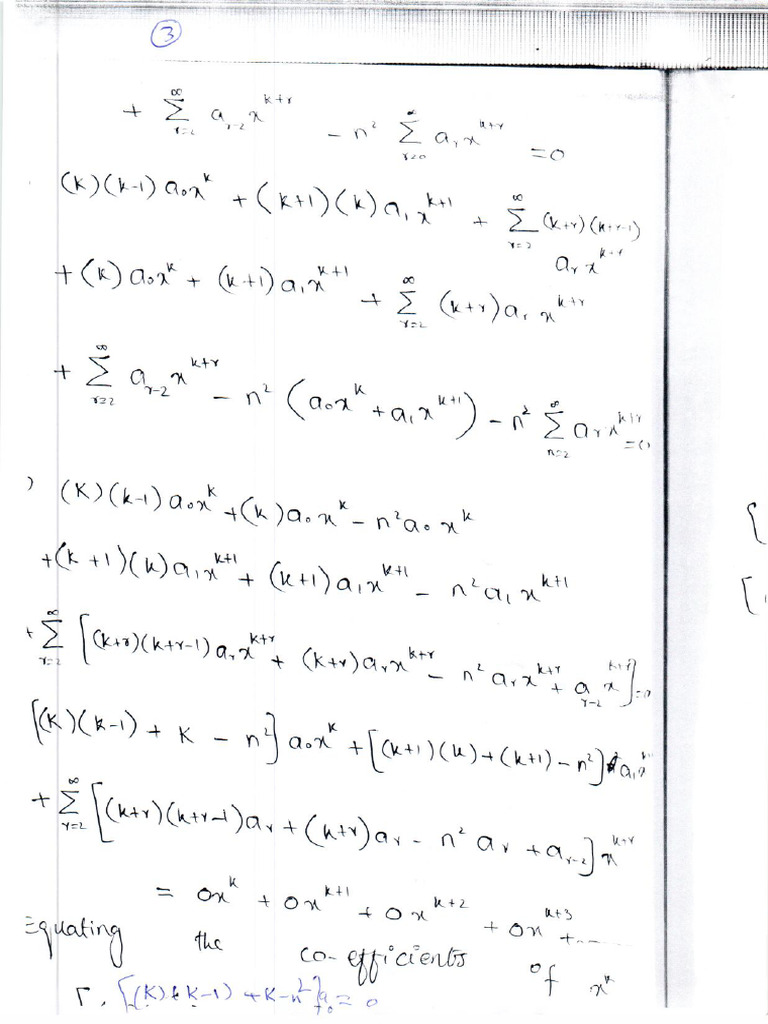 ③
+ ∑_{r=2}^{∞} a_{r-2} x^{k+r} - n² ∑_{r=0}^{∞} a_r x^{k+r} = 0
(k)(k-1) a₀x^k + (k+1)(k) a₁x^{k+1} + ∑_{r=2}^{∞} (k+r)(k+r-1)
a_r x^{k+r}
+ (k) a₀x^k + (k+1) a₁x^{k+1} + ∑_{r=2}^{∞} (k+r) a_r x^{k+r}
+ ∑_{r=2}^{∞} a_{r-2} x^{k+r} - n² (a₀x^k + a₁x^{k+1}) - n² ∑_{n=2}^{∞} a_r x^{k+r} = 0
) (K)(k-1) a₀x^k + (k) a₀x^k - n² a₀ x^k
+ (k+1)(k) a₁x^{k+1} + (k+1) a₁x^{k+1} - n² a₁ x^{k+1}
+ ∑_{r=2}^{∞} [(k+r)(k+r-1) a_r x^{k+r} + (k+r) a_r x^{k+r} - n² a_r x^{k+r} + a_{r-2} x^{k+r}] = 0
[(K)(k-1) + K - n²] a₀x^k + [(k+1)(k) + (k+1) - n²] a₁x
+ ∑_{r=2}^{∞} [(k+r)(k+r-1) a_r + (k+r) a_r - n² a_r + a_{r-2}] x^{k+r}
= 0x^k + 0x^{k+1} + 0x^{k+2} + 0x^{k+3} + ....
Equating the co-efficients of x^k
[(K)(K-1) + K - n²] a₀ = 0